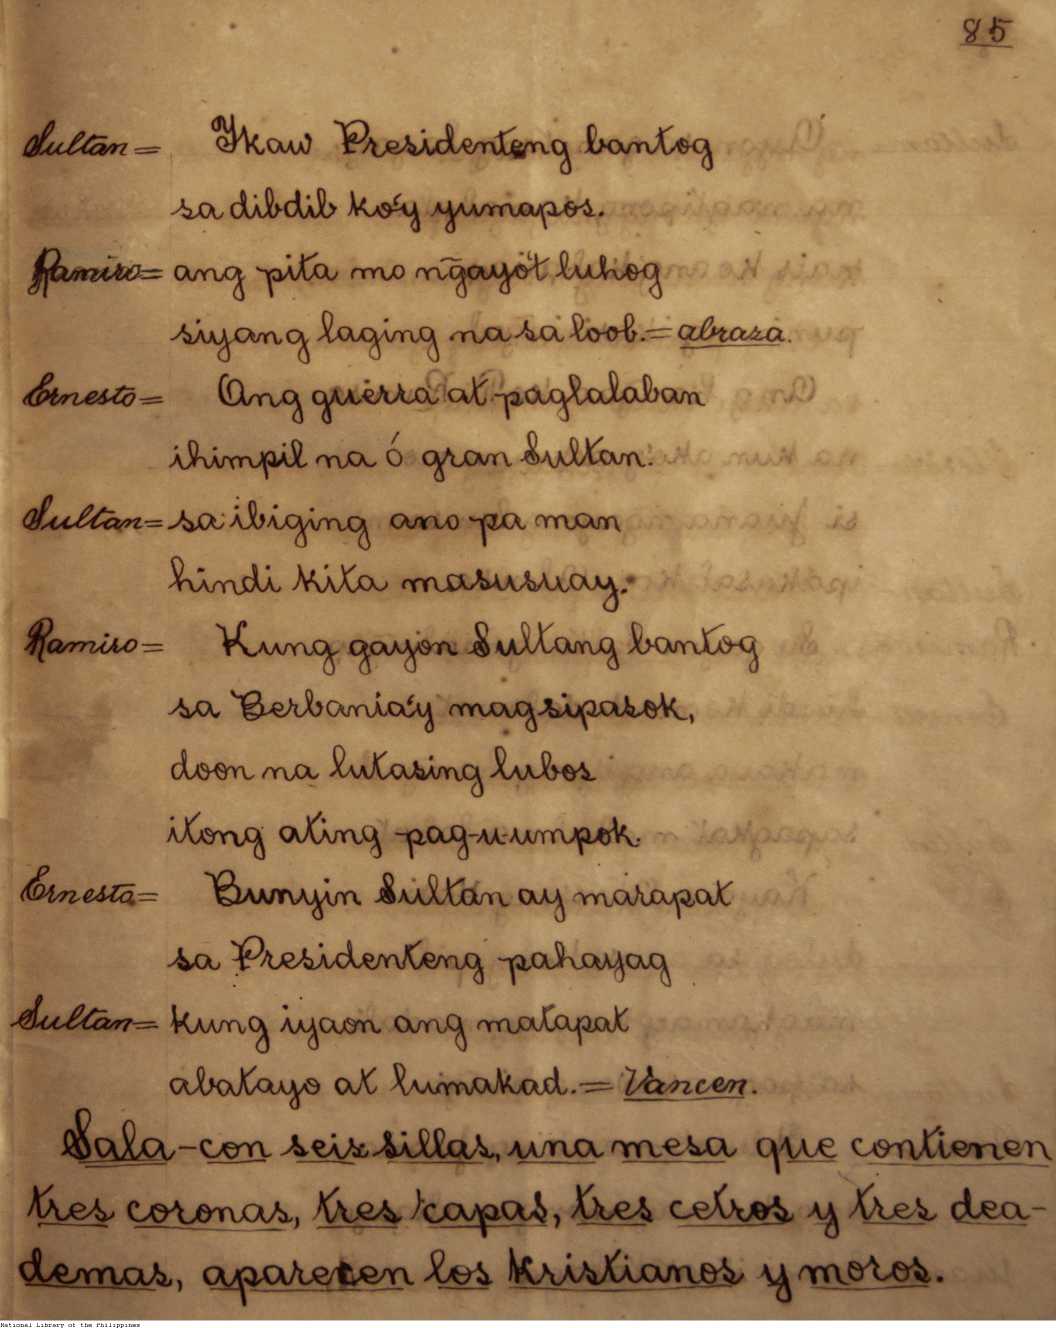 85
Sultan= Ikaw Presidenteng bantog
sa dibdib ko'y yumapos.
Ramiro= ang pita mo ng̃ayo't luhog
siyang laging na sa loob.= abraza.
Ernesto= Ang guerra at paglalaban
ihimpil na ó gran Sultan.
Sultan= sa ibiging ano pa man
hindi kita masusuay.
Ramiro= Kung gayon Sultang bantog
sa Berbania'y magsipasok,
doon na lutasing lubos
itong ating pag-u-umpok.
Ernesto= Bunyin Sultán ay marapat
sa Presidenteng pahayag
Sultan= kung iyaon ang matapat
abatayo at lumakad.= Vancen.
Sala-con seis sillas, una mesa que contienen
tres coronas, tres capas, tres cetros y tres dea-
demas, aparecen los kristianos y moros.
National Library of the Philippines